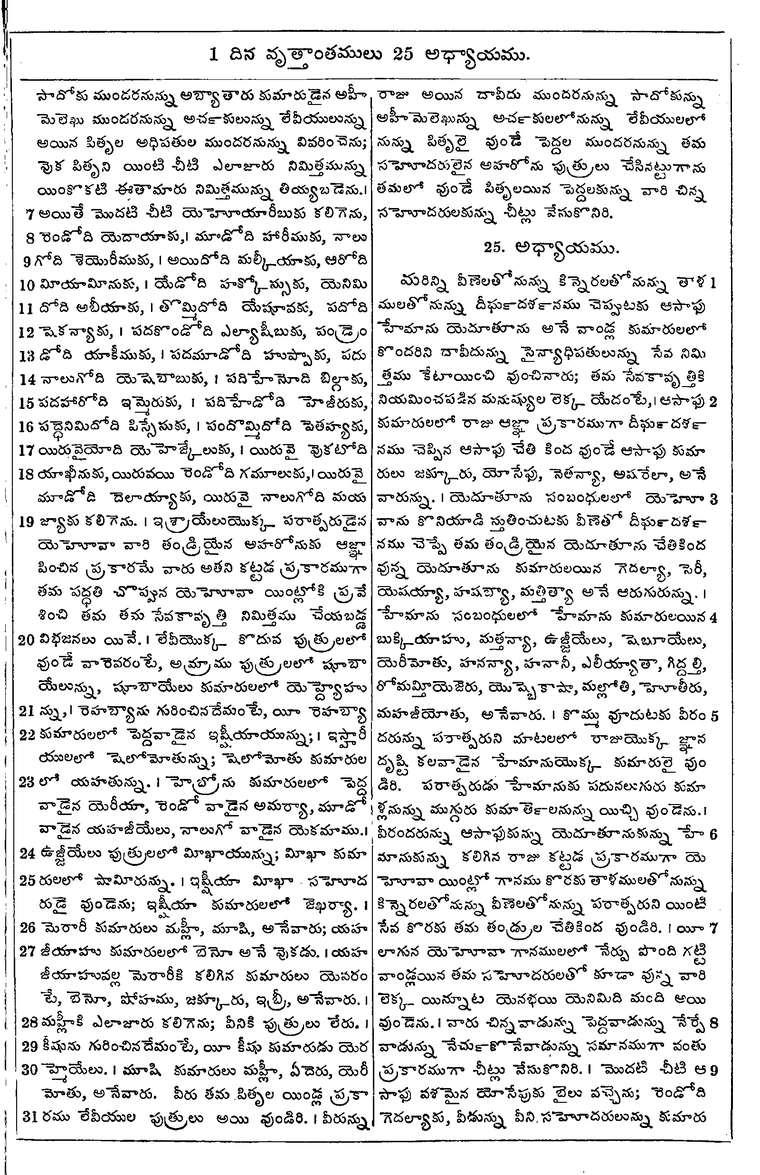 1 దిన వృత్తాంతములు 25 అధ్యాయము.
సాదోకు ముందరనున్ను అబ్యాతారు కుమారుడైన అహీ
మెలెఖు ముందరనున్ను అర్చకులున్ను లేవీయులున్ను
అయిన పితృల అధిపతుల ముందరనున్ను వివరించెను;
వొక పితృని యింటి చీటి ఎలాజారు నిమిత్తమున్ను
యింకొకటి ఈతామారు నిమిత్తమున్ను తియ్యబడెను.।
7 అయితే మొదటి చీటి యెహూయారీబుకు కలిగెను,
8 రెండోది యెదాయాకు,। మూడోది హారీముకు, నాలు
9 గోది శెయొరీముకు,। అయిదోది మల్కీయాకు, ఆరోది
10 మీయామీనుకు,। యేడోది హక్కోస్సుకు, యెనిమి
11 దోది అబీయాకు,। తొమ్మిదోది యేషూవకు, పదోది
12 షెకన్యాకు,। పదకొండోది ఎల్యాషీబుకు, పండ్రెం
13 డోది యాకీముకు,। పదమూడోది హుప్పాకు, పదు
14 నాలుగోది యెషెబాబుకు,। పదిహేనోది బిల్గాకు,
15 పదహారోది ఇమ్మెరుకు,। పదిహేడోది హెజీరుకు,
16 పద్ధెనిమిదోది పిస్సేసుకు,। పందొమ్మిదోది పెతహ్యాకు,
17 యిరువైయోది యెహెజ్కేలుకు,। యిరువై వొకటోది
18 యాఖీనుకు, యిరువయి రెండోది గమూలుకు,। యిరువై
మూడోది దెలాయ్యాకు, యిరువై నాలుగోది మయ
19 జ్యాకు కలిగెను.। ఇశ్రాయేలుయొక్క పరాత్పరుడైన
యెహోవా వారి తండ్రియైన అహరోనుకు ఆజ్ఞా
పించిన ప్రకారమే వారు అతని కట్టడ ప్రకారముగా
తమ పద్ధతి చొప్పున యెహోవా యింట్లోకి ప్రవే
శించి తమ తమ సేవకావృత్తి నిమిత్తము చేయబడ్డ
20 విభజనలు యివే.। లేవీయొక్క కొదువ పుత్రులలో
వుండే వారెవరంటే, అమ్రాము పుత్రులలో షూబా
యేలున్ను, షూబాయేలు కుమారులలో యెహ్ద్యాహు
21 న్ను,। రెహబ్యాను గురించినదేమంటే, యీ రెహబ్యా
22 కుమారులలో పెద్దవాడైన ఇష్షీయాయున్ను;। ఇస్హారీ
యులలో షెలోమోతున్ను; షెలోమోతు కుమారుల
23 లో యహతున్ను.। హెబ్రోను కుమారులలో పెద్ద
వాడైన యెరీయా, రెండో వాడైన అమర్యా, మూడో
వాడైన యహజీయేలు, నాలుగో వాడైన యెకమాము.।
24 ఉజ్జీయేలు పుత్రులలో మీఖాయున్ను; మీఖా కుమా
25 రులలో షామీరున్ను.। ఇష్షీయా మీఖా సహోద
రుడై వుండెను; ఇష్షీయా కుమారులలో జెఖర్యా.।
26 మెరారీ కుమారులు మహ్లీ, మూషి, అనేవారు; యహ
27 జీయాహు కుమారులలో బెనో అనే వొకడు.। యహ
జీయాహువల్ల మెరారీకి కలిగిన కుమారులు యెవరం
టే, బెనో, షోహము, జక్కూరు, ఇబ్రీ, అనేవారు.।
28 మహ్లీకి ఎలాజారు కలిగెను; వీనికి పుత్రులు లేరు.।
29 కీషును గురించినదేమంటే, యీ కీషు కుమారుడు యెర
30 హ్మెయేలు.। మూషి కుమారులు మహ్లీ, ఏదెరు, యెరీ
మోతు, అనేవారు. వీరు తమ పితృల యిండ్ల ప్రకా
31 రము లేవీయుల పుత్రులు అయి వుండిరి.। వీరున్ను
రాజు అయిన దావీదు ముందరనున్ను సాదోకున్ను
అహీమెలెఖున్ను అర్చకులలోనున్ను లేవీయులలో
నున్ను పితృలై వుండే పెద్దల ముందరనున్ను తమ
సహోదరులైన అహరోను పుత్రులు చేసినట్టుగాను
తమలో వుండే పితృలయిన పెద్దలకున్ను వారి చిన్న
సహోదరులకున్ను చీట్లు వేసుకొనిరి.
25. అధ్యాయము.
మరిన్ని వీణెలతోనున్ను కిన్నెరలతోనున్ను తాళ 1
ములతోనున్ను దీర్ఘదర్శనము చెప్పుటకు ఆసాఫు
హేమాను యెదూతూను అనే వాండ్ల కుమారులలో
కొందరిని దావీదున్ను సైన్యాధిపతులున్ను సేవ నిమి
త్తము కేటాయించి వుంచినారు; తమ సేవకావృత్తికి
నియమించపడిన మనుష్యుల లెక్క యేదంటే,। ఆసాఫు 2
కుమారులలో రాజు ఆజ్ఞా ప్రకారముగా దీర్ఘదర్శ
నము చెప్పిన ఆసాఫు చేతి కింద వుండే ఆసాఫు కుమా
రులు జక్కూరు, యోసేఫు, నెతన్యా, అషరేలా, అనే
వారున్ను.। యెదూతూను సంబంధులలో యెహో 3
వాను కొనియాడి స్తుతించుటకు వీణెతో దీర్ఘదర్శ
నము చెప్పే తమ తండ్రియైన యెదూతూను చేతికింద
వున్న యెదూతూను కుమారులయిన గెదల్యా, సెరీ,
యెషయ్యా, హషబ్యా, మత్తిత్యా అనే ఆరుగురున్ను.।
హేమాను సంబంధులలో హేమాను కుమారులయిన 4
బుక్కియాహు, మత్తన్యా, ఉజ్జీయేలు, షెబూయేలు,
యెరీమోతు, హనన్యా, హనానీ, ఎలీయ్యాతా, గిద్దల్తి,
రోమమ్తియెజెరు, యొష్బెకాషా, మల్లోతి, హోతీరు,
మహజీయోతు, అనేవారు.। కొమ్ము వూదుటకు వీరం 5
దరున్ను పరాత్పరుని మాటలలో రాజుయొక్క జ్ఞాన
దృష్టి కలవాడైన హేమానుయొక్క కుమారులై వుం
డిరి. పరాత్పరుడు హేమానుకు పదునలుగురు కుమా
ళ్లనున్ను ముగ్గురు కుమార్తెలనున్ను యిచ్చి వుండెను.।
వీరందరున్ను ఆసాఫుకున్ను యెదూతూనుకున్ను హే 6
మానుకున్ను కలిగిన రాజు కట్టడ ప్రకారముగా యె
హోవా యింట్లో గానము కొరకు తాళములతోనున్ను
కిన్నెరలతోనున్ను వీణెలతోనున్ను పరాత్పరుని యింటి
సేవ కొరకు తమ తండ్రుల చేతికింద వుండిరి.। యీ 7
లాగున యెహోవా గానములలో నేర్పు పొంది గట్టి
వాండ్లయిన తమ సహోదరులతో కూడా వున్న వారి
లెక్క యిన్నూట యెనభయి యెనిమిది మంది అయి
వుండెను.। వారు చిన్నవాడున్ను పెద్దవాడున్ను నేర్పే 8
వాడున్ను నేర్చుకొనేవాడున్ను సమానముగా వంతు
ప్రకారముగా చీట్లు వేసుకొనిరి.। మొదటి చీటి ఆ 9
సాఫు వశమైన యోసేఫుకు బైలు వచ్చెను; రెండోది
గెదల్యాకు, వీడున్ను వీని సహోదరులున్ను కుమారు